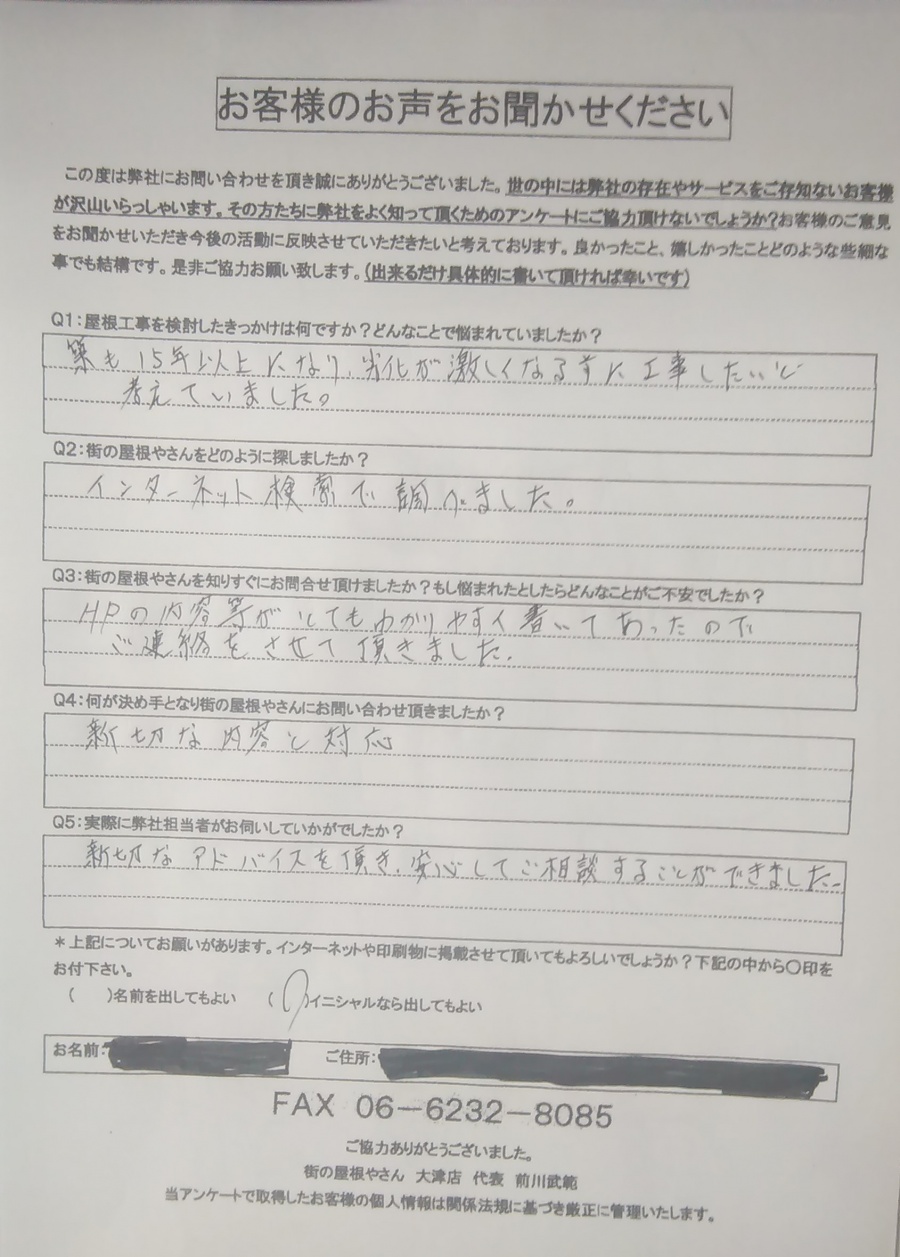 お客様のお声をお聞かせください
この度は弊社にお問い合わせを頂き誠にありがとうございました。世の中には弊社の存在やサービスをご存知ないお客様
が沢山いらっしゃいます。その方たちに弊社をよく知って頂くためのアンケートにご協力頂けないでしょうか?お客様のご意見
をお聞かせいただき今後の活動に反映させていただきたいと考えております。良かったこと、嬉しかったことどのような些細な
事でも結構です。是非ご協力お願い致します。(出来るだけ具体的に書いて頂ければ幸いです)
Q1:屋根工事を検討したきっかけは何ですか?どんなことで悩まれていましたか?
築も15年以上になり、劣化が激しくなる前に工事したいと
考えていました。
Q2:街の屋根やさんをどのように探しましたか?
インターネット検索で調べました。
Q3:街の屋根やさんを知りすぐにお問合せ頂けましたか?もし悩まれたとしたらどんなことがご不安でしたか?
HPの内容等がとてもわかりやすく書いてあったので
ご連絡をさせて頂きました.
Q4:何が決め手となり街の屋根やさんにお問い合わせ頂きましたか?
親切な内容と対応
Q5:実際に弊社担当者がお伺いしていかがでしたか?
親切なアドバイスを頂き、安心してご相談することができました.
*上記についてお願いがあります。インターネットや印刷物に掲載させて頂いてもよろしいでしょうか?下記の中から〇印を
お付下さい。
( )名前を出してもよい (〇)イニシャルなら出してもよい
お名前: ご住所:
FAX 06-6232-8085
ご協力ありがとうございました。
街の屋根やさん 大津店 代表 前川武範
当アンケートで取得したお客様の個人情報は関係法規に基づき厳正に管理いたします。